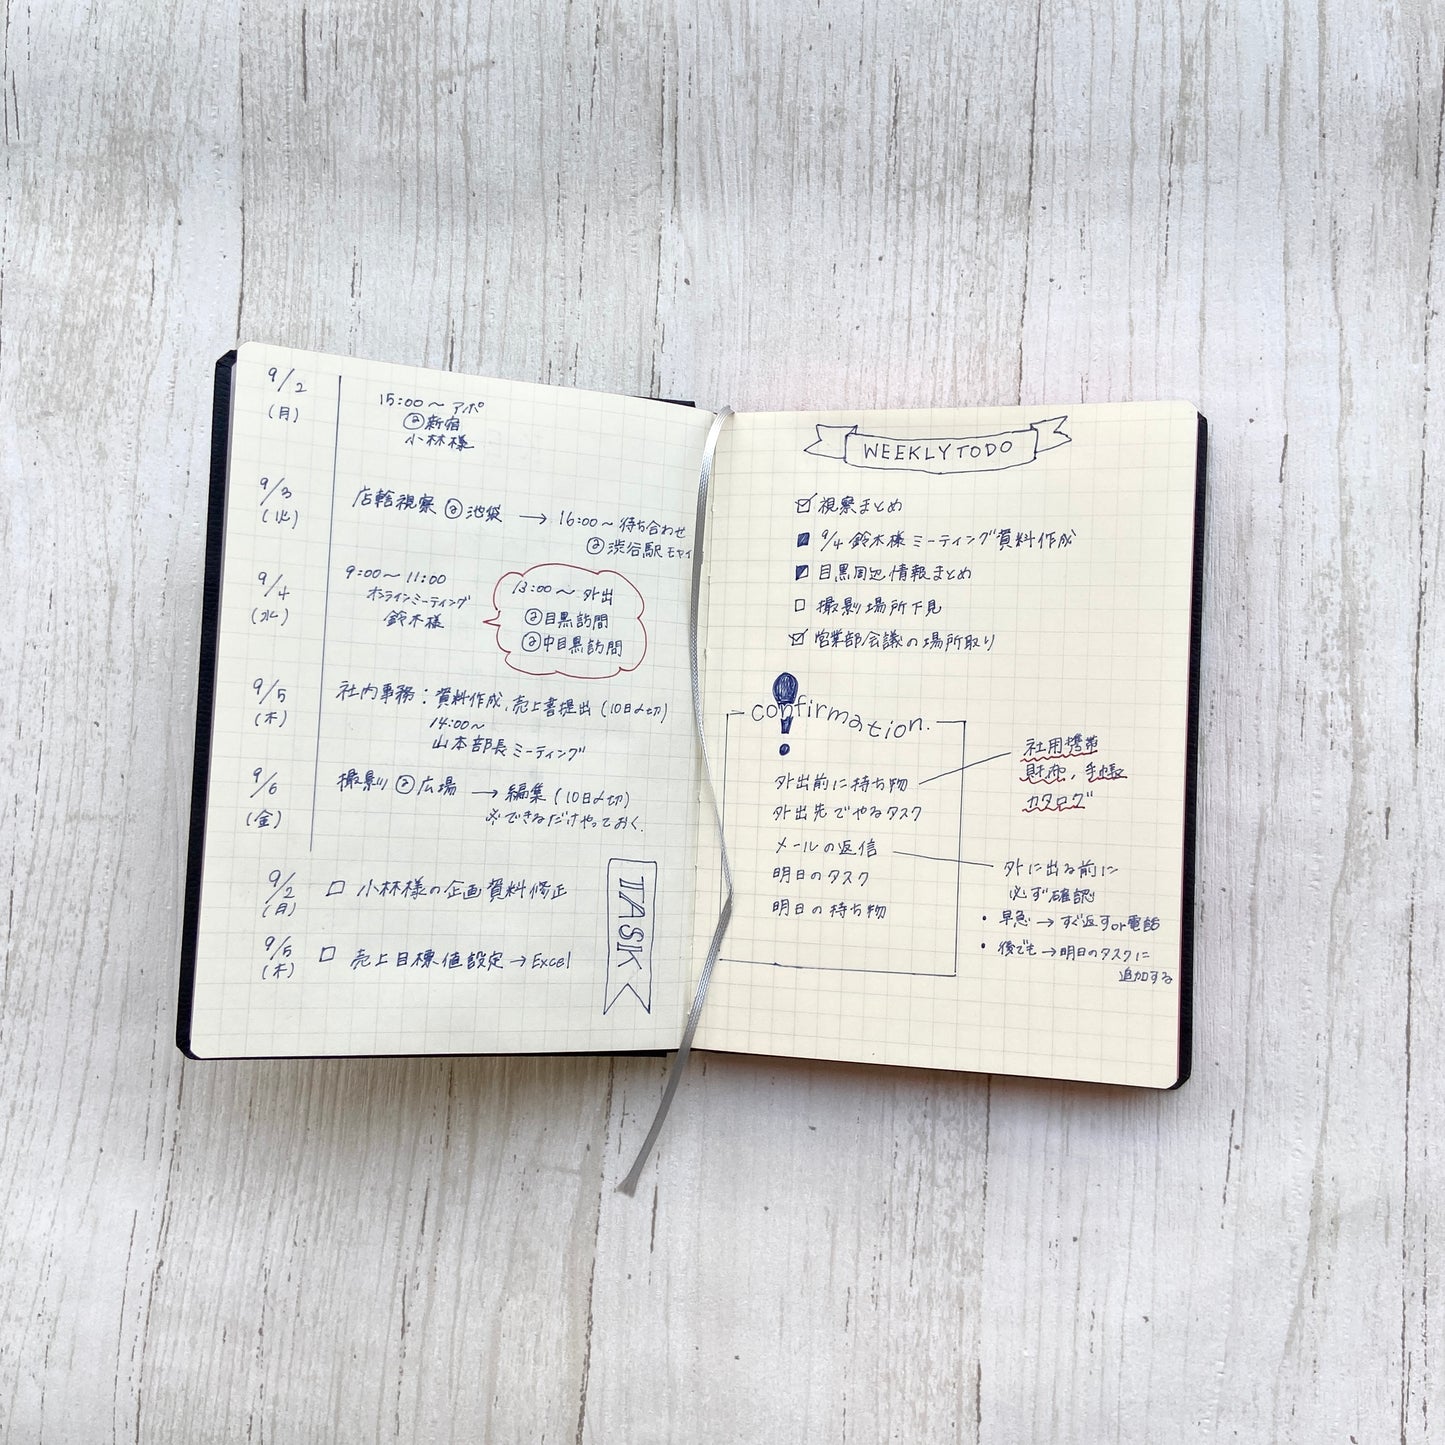 9/2
(月)
15:00〜アポ
@新宿
小林様
9/3
(火)
店舗視察 @池袋 → 16:00〜待ち合わせ
@渋谷駅モヤイ
9/4
(水)
9:00〜11:00
オンラインミーティング
鈴木様
13:00〜外出
@目黒訪問
@中目黒訪問
9/5
(木)
社内事務:資料作成、売上書提出(10日〆切)
14:00〜
山本部長ミーティング
9/6
(金)
撮影 @広場 → 編集(10日〆切)
※できるだけやっておく.
9/2
(月)
□ 小林様の企画資料修正
9/5
(木)
□ 売上目標値設定→Excel
TASK
WEEKLY TODO
☑ 視察まとめ
■ 9/4 鈴木様ミーティング資料作成
◩ 目黒周辺情報まとめ
□ 撮影場所下見
☑ 営業部会議の場所取り
confirmation.
外出前に持ち物
外出先でやるタスク
メールの返信
明日のタスク
明日の持ち物
社用携帯
財布、手帳
カタログ
外に出る前に
必ず確認
・早急→すぐ返すor電話
・後でも→明日のタスクに
追加する